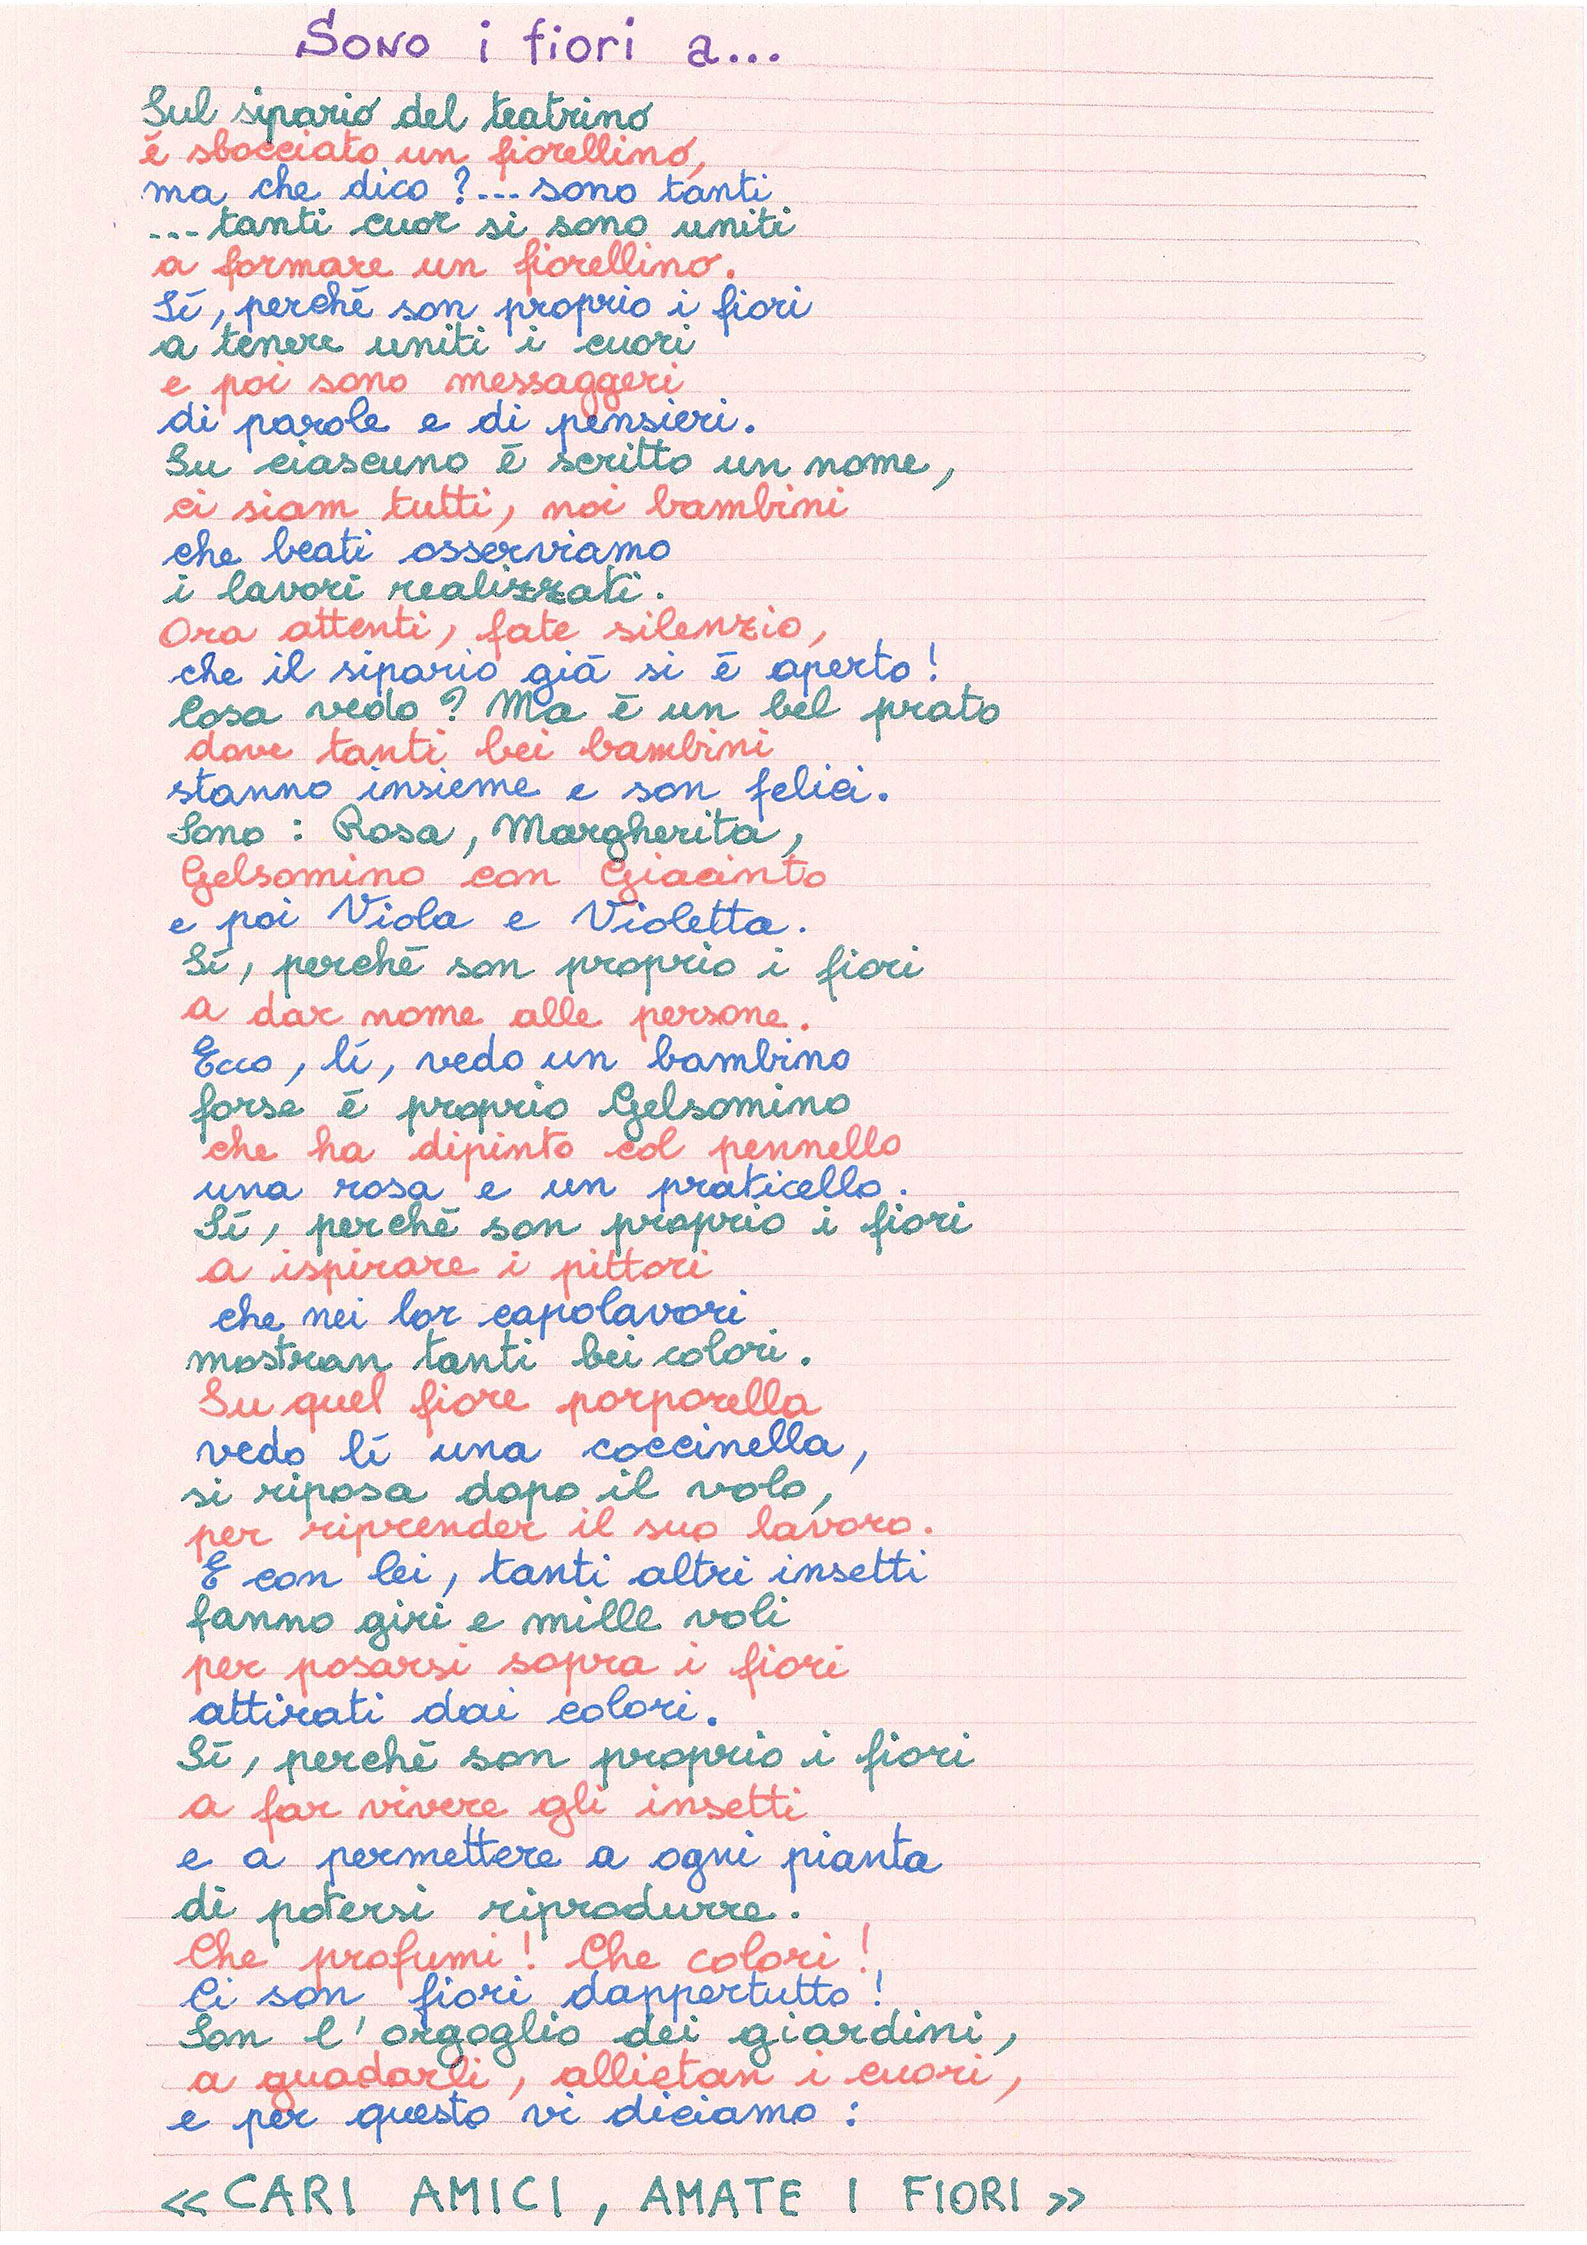 Sono i fiori a...
Sul sipario del teatrino
è sbocciato un fiorellino,
ma che dico ?... sono tanti
...tanti cuor si sono uniti
a formare un fiorellino.
Sì, perché son proprio i fiori
a tenere uniti i cuori
e poi sono messaggeri
di parole e di pensieri.
Su ciascuno è scritto un nome,
ci siam tutti, noi bambini
che beati osserviamo
i lavori realizzati.
Ora attenti, fate silenzio,
che il sipario già si è aperto!
Cosa vedo? Ma è un bel prato
dove tanti bei bambini
stanno insieme e son felici.
Sono: Rosa, Margherita,
Gelsomino con Giacinto
e poi Viola e Violetta.
Sì, perché son proprio i fiori
a dar nome alle persone.
Ecco, lì, vedo un bambino
forse è proprio Gelsomino
che ha dipinto col pennello
una rosa e un praticello.
Sì, perché son proprio i fiori
a ispirare i pittori
che nei lor capolavori
mostran tanti bei colori.
Su quel fiore porporella
vedo lì una coccinella,
si riposa dopo il volo,
per riprender il suo lavoro.
E con lei, tanti altri insetti
fanno giri e mille voli
per posarsi sopra i fiori
attirati dai colori.
Sì, perché son proprio i fiori
a far vivere gli insetti
e a permettere a ogni pianta
di potersi riprodurre.
Che profumi! Che colori!
Ci son fiori dappertutto!
Son l'orgoglio dei giardini,
a guadarli, allietan i cuori,
e per questo vi diciamo:
<< CARI AMICI, AMATE I FIORI >>